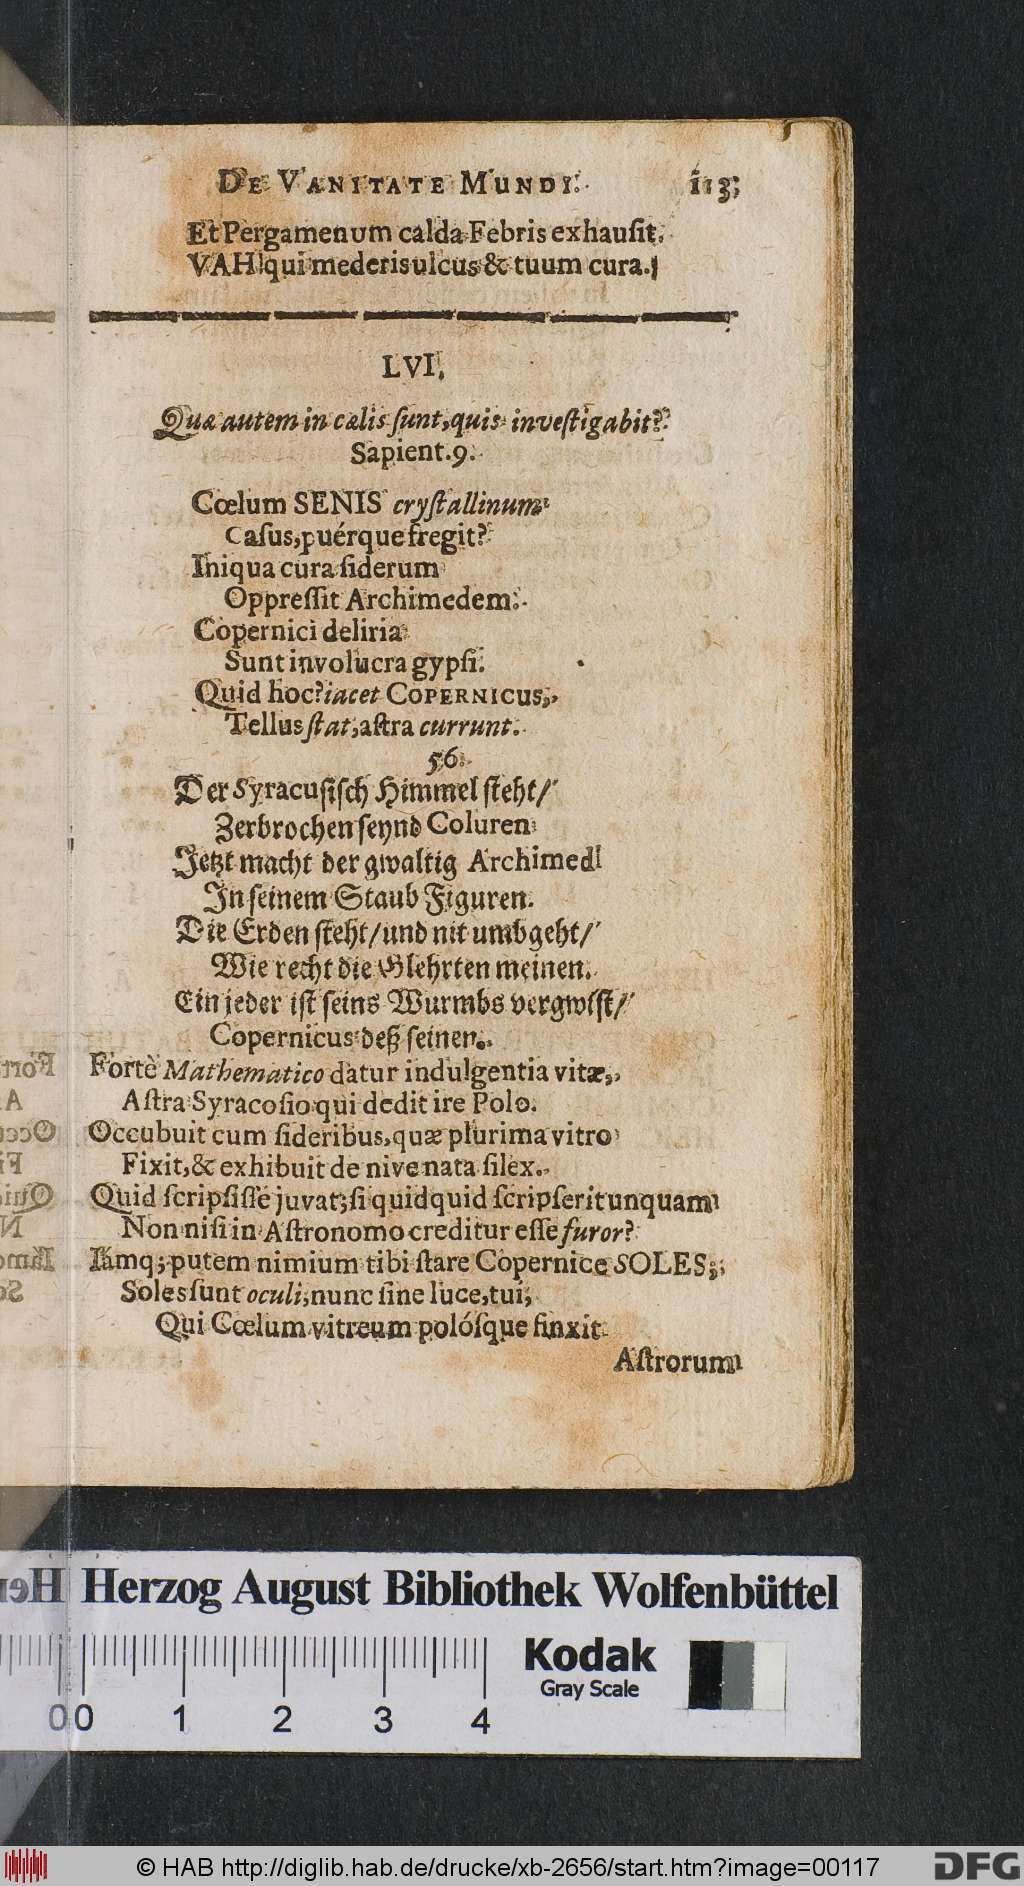 DE VANITATE MUNDI. 113
Et Pergamenum calda Febris exhauſit.
VAH! qui mederis ulcus & tuum cura.
LVI.
Quæ autem in cælis ſunt, quis inveſtigabit?
Sapient. 9.
Cœlum SENIS cryſtallinum
Caſus, puérque fregit?
Iniqua cura ſiderum
Oppreſſit Archimedem.
Copernici deliria
Sunt involucra gypſi.
Quid hoc? iacet COPERNICUS,
Tellus ſtat, aſtra currunt.
56.
Der Syracuſiſch Himmel ſteht/
Zerbrochen ſeynd Coluren
Jetzt macht der gwaltig Archimed
In ſeinem Staub Figuren.
Die Erden ſteht/ und nit umbgeht/
Wie recht die Glehrten meinen.
Ein jeder iſt ſeins Wurmbs vergwiſt/
Copernicus deß ſeinen.
Fortè Mathematico datur indulgentia vitæ,
Aſtra Syracoſio qui dedit ire Polo.
Occubuit cum ſideribus, quæ plurima vitro
Fixit, & exhibuit de nive nata ſilex.
Quid ſcripſiſſe juvat; ſi quidquid ſcripſerit unquam
Non niſi in Aſtronomo creditur eſſe furor?
Iamq; putem nimium tibi ſtare Copernice SOLES;
Soles ſunt oculi, nunc ſine luce, tui,
Qui Cœlum vitreum polóſque finxit
Aſtrorum
Herzog August Bibliothek Wolfenbüttel
Kodak
Gray Scale
0 0 1 2 3 4
© HAB http://diglib.hab.de/drucke/xb-2656/start.htm?image=00117
DFG